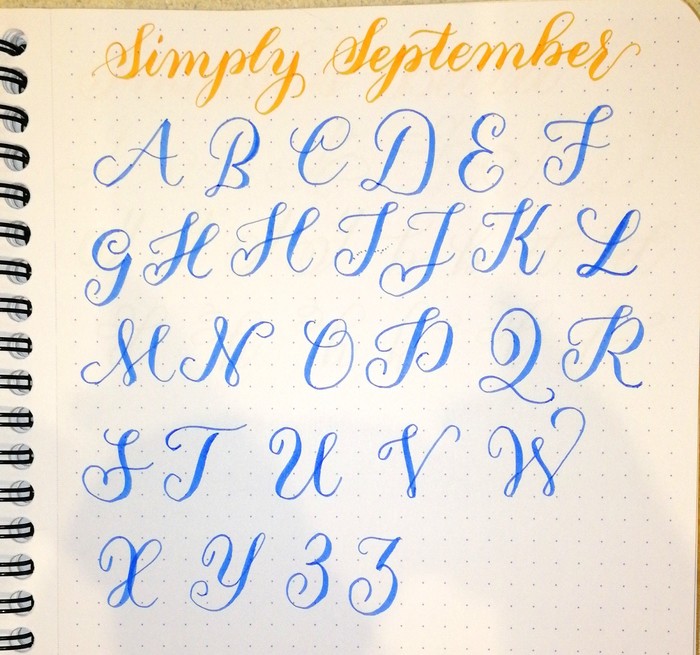 Simply September
A B C D E F
G H H I J K L
M N O P Q R
S T U V W
X Y Z Z